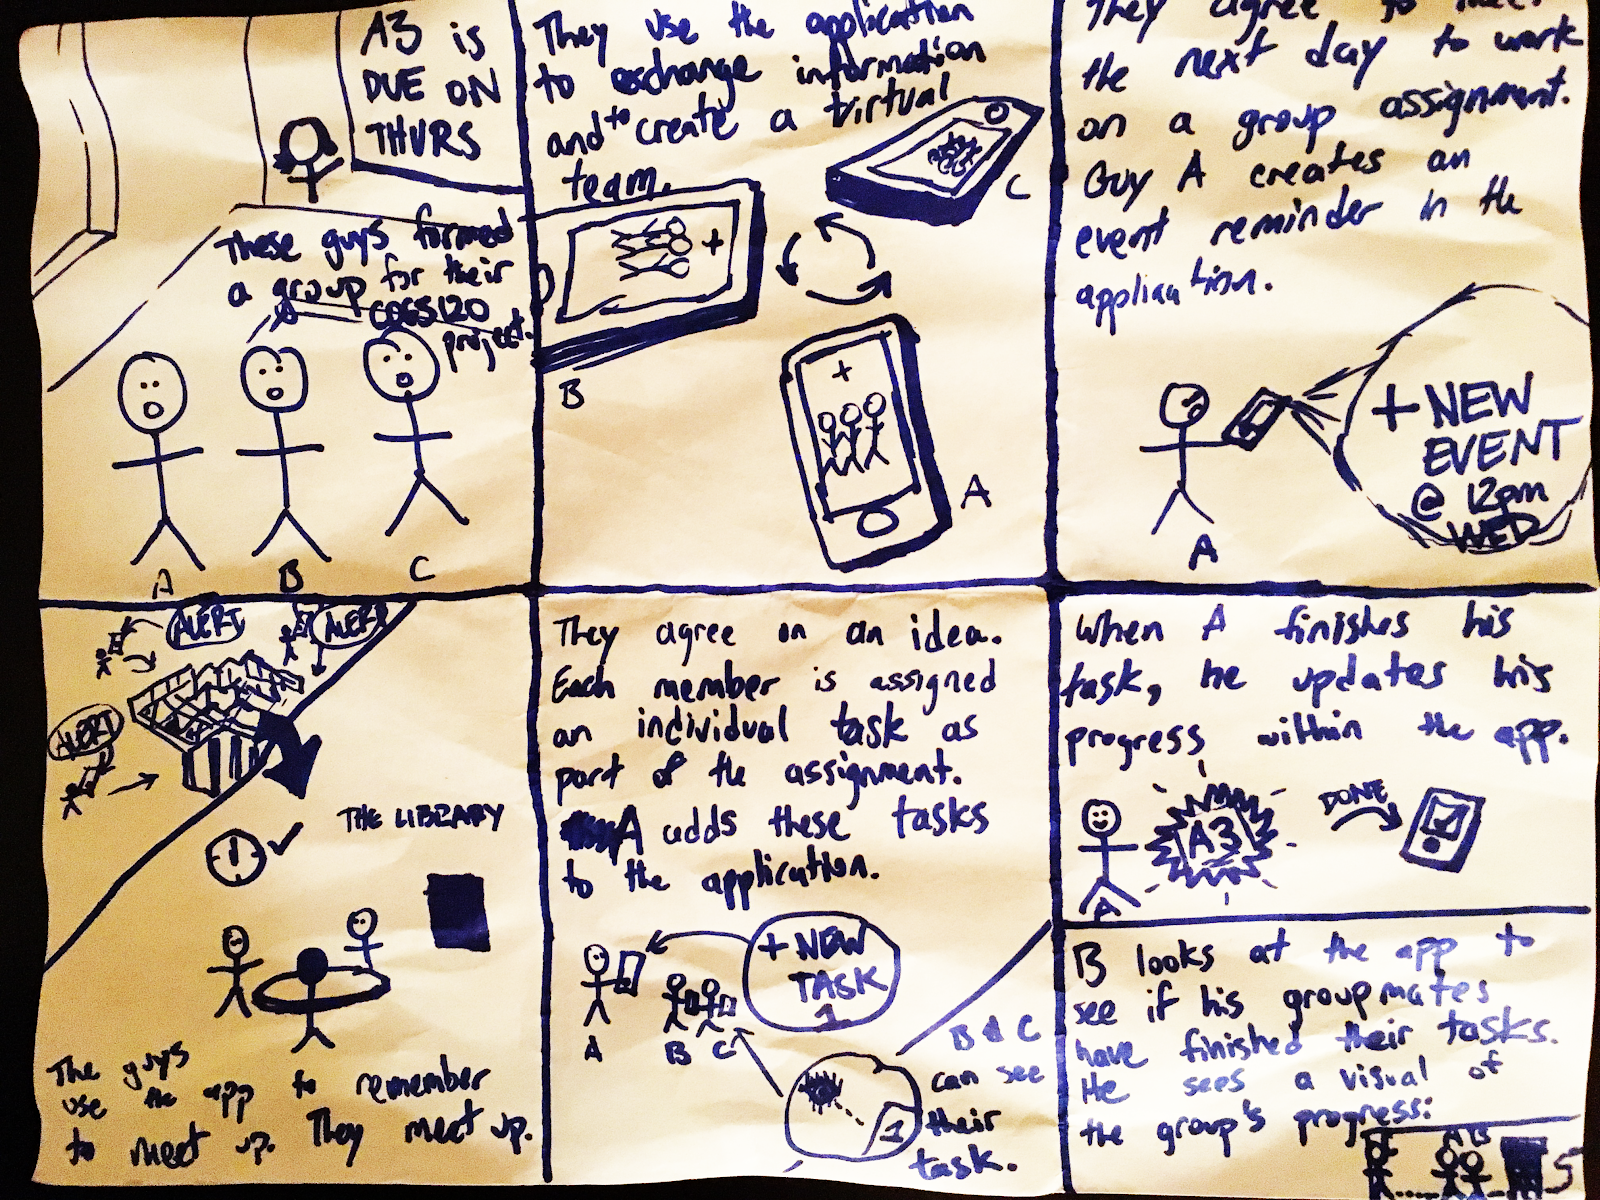 A3 is
DUE ON
THURS
These guys formed
a group for their
COGS120
project.
A
B
C
They use the application
to exchange information
and to create a virtual
team.
C
B
A
They agree to meet
the next day to work
on a group assignment.
Guy A creates an
event reminder in the
application.
+ NEW
EVENT
@ 12pm
WED
A
ALERT
ALERT
ALERT
THE LIBRARY
The guys
use the app to remember
to meet up. They meet up.
They agree on an idea.
Each member is assigned
an individual task as
part of the assignment.
A adds these tasks
to the application.
+ NEW
TASK
1
A
B C
1
B & C
can see
their
task.
When A finishes his
task, he updates his
progress within the app.
A3
DONE
A
B looks at the app to
see if his groupmates
have finished their tasks.
He sees a visual of
the group's progress:
A B